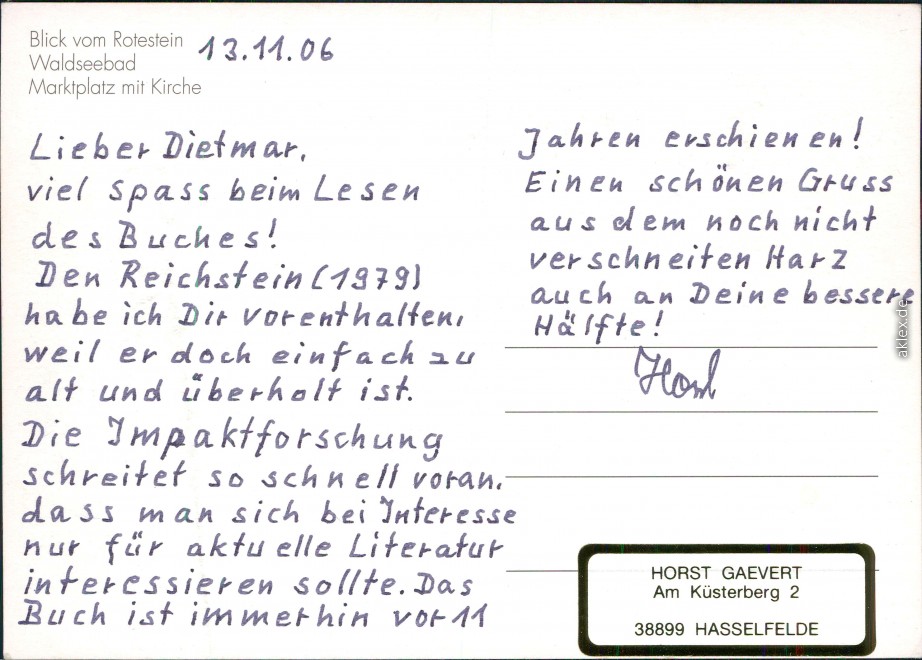 Blick vom Rotestein
Waldseebad
Marktplatz mit Kirche
13.11.06
Lieber Dietmar,
viel Spass beim Lesen
des Buches!
Den Reichstein (1979)
habe ich Dir vorenthalten,
weil er doch einfach zu
alt und überholt ist.
Die Impaktforschung
schreitet so schnell voran,
dass man sich bei Interesse
nur für aktuelle Literatur
interessieren sollte. Das
Buch ist immerhin vor 11
Jahren erschienen!
Einen schönen Gruss
aus dem noch nicht
verschneiten Harz
auch an Deine bessere
Hälfte!
Horst
HORST GAEVERT
Am Küsterberg 2
38899 HASSELFELDE
aklex.de